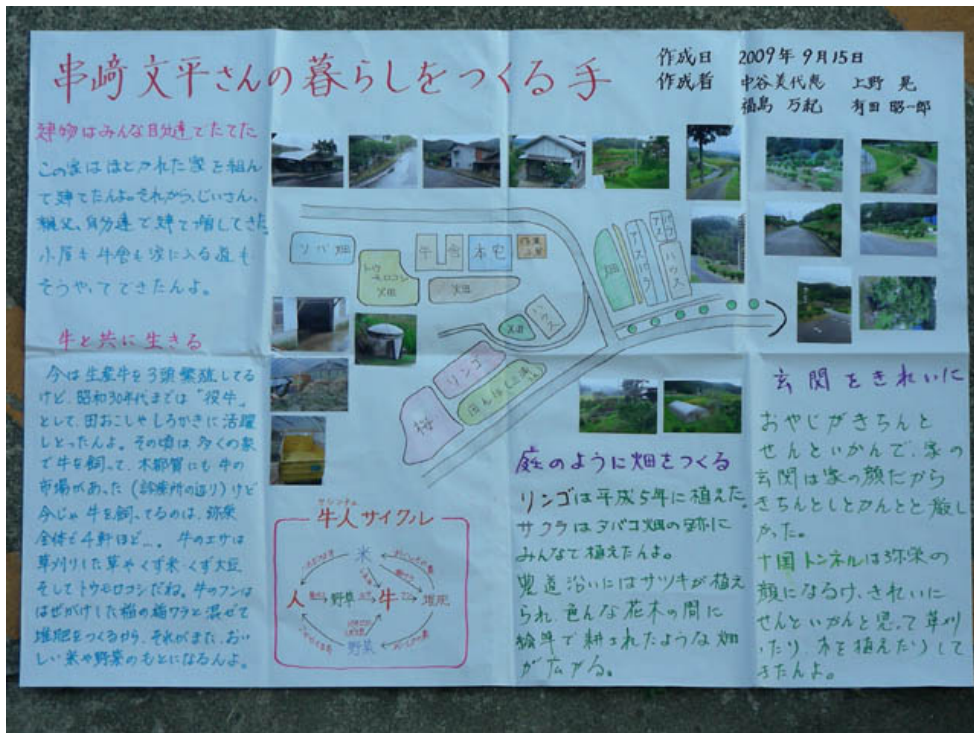 串﨑文平さんの暮らしをつくる手
作成日 2009年 9月15日
作成者 中谷美代恵 上野 晃
福島 万紀 有田 昭一郎
建物はみんな自分達でたてた
この家はほどかれた家を組ん
で建てたんよ。それから、じいさん、
親父、自分達で建て増してきた。
小屋も牛舎も家に入る道も
そうやってできたんよ。
牛と共に生きる
今は生産牛を3頭繁殖してる
けど、昭和30年代までは"役牛"
として、田おこしやしろかきに活躍
しとったんよ。その頃は多くの家
で牛を飼って、木都賀にも牛の
市場があった(診療所の辺り)けど
今じゃ牛を飼ってるのは、弥栄
全体で4軒ほど…。牛のエサは
草刈りした草やくず米・くず大豆
そしてトウモロコシだね。牛のフンは
はぜがけした稲の稲ワラと混ぜて
堆肥をつくるから、それがまた、おい
しい米や野菜のもとになるんよ。
ソバ畑
トウモロコシ畑
牛舎
本宅
作業小屋
畑
畑
アスパラ
アスパラ
ハウス
ハウス
畑
ハウス
リンゴ
桜
牛人サイクル
米
人
野草
エサ
牛
フン
堆肥
野菜
庭のように畑をつくる
リンゴは平成5年に植えた。
サクラはタバコ畑の跡に
みんなで植えたんよ。
農道沿いにはサツキが植え
られ、色んな花木の間に
で耕されたような畑
が広がる。
玄関をきれいに
おやじがきちんと
せんといかんで、家の
玄関は家の顔だから
きちんとしとかんとと厳し
かった。
十国トンネルは弥栄の
顔になるけ、きれいに
せんといかんと思って草刈
ったり、木を植えたりして
きたんよ。